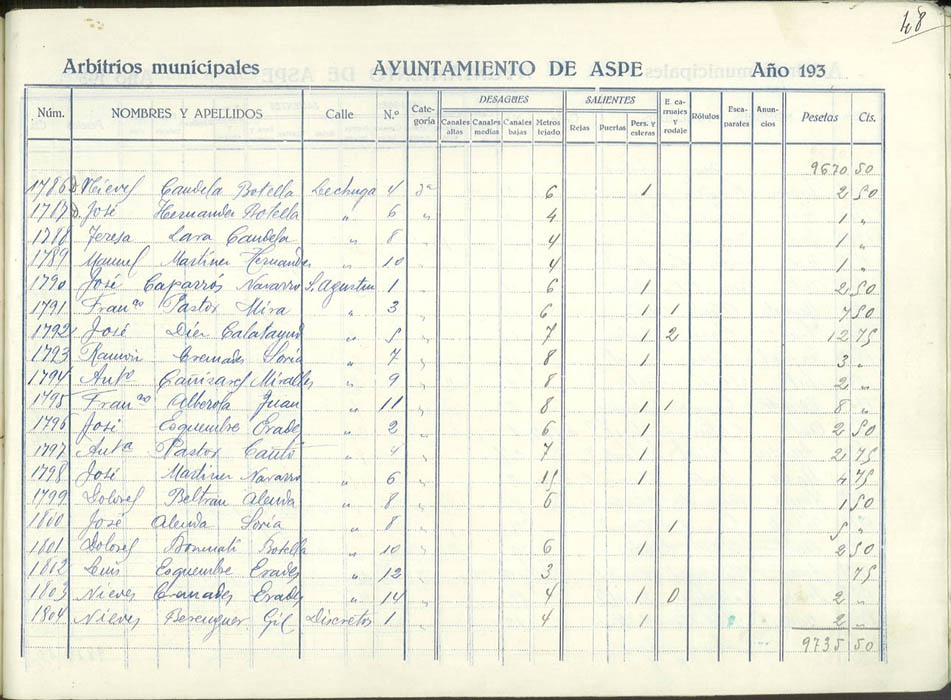 48
Arbitrios municipales AYUNTAMIENTO DE ASPE Año 193
Núm. NOMBRES Y APELLIDOS Calle N.º Cate-goría DESAGUES Canales altas Canales medias Canales bajas Metros tejado SALIENTES Rejas Puertas Pers. y esteras E ca-rruajes y rodaje Rótulos Esca-parates Anun-cios Pesetas Cts.
9670 50
1786 D. Nieves Candela Botella Lechuga 4 3ª 6 1 2 50
1787 D. José Hernandez Botella " 6 " 4 1 "
1788 Teresa Lara Candela " 8 " 4 1 "
1789 Manuel Martinez Hernandez " 10 " 4 1 "
1790 José Caparrós Navarro S. Agustin 1 " 6 1 2 50
1791 Franco Pastor Mira " 3 " 6 1 1 7 50
1792 José Diez Calatayud " 5 " 7 1 2 12 75
1793 Ramón Cremades Soria " 7 " 8 1 3 "
1794 Anto Cañizares Miralles " 9 " 8 2 "
1795 Franco Alberola Juan " 11 " 8 1 1 8 "
1796 José Esquembre Erades " 2 " 6 1 2 50
1797 Anta Pastor Cantó " 4 " 7 1 2 75
1798 José Martinez Navarro " 6 " 15 1 4 75
1799 Dolores Beltrán Alenda " 8 " 6 1 50
1800 José Alenda Soria " 8 " 1 5 "
1801 Dolores Bonmatí Botella " 10 " 6 1 2 50
1802 Luis Esquembre Erades " 12 " 3 75
1803 Nieves Cremades Erades " 14 " 4 1 0 2 "
1804 Nieves Berenguer Gil Discretos 1 " 4 1 2 "
9735 50